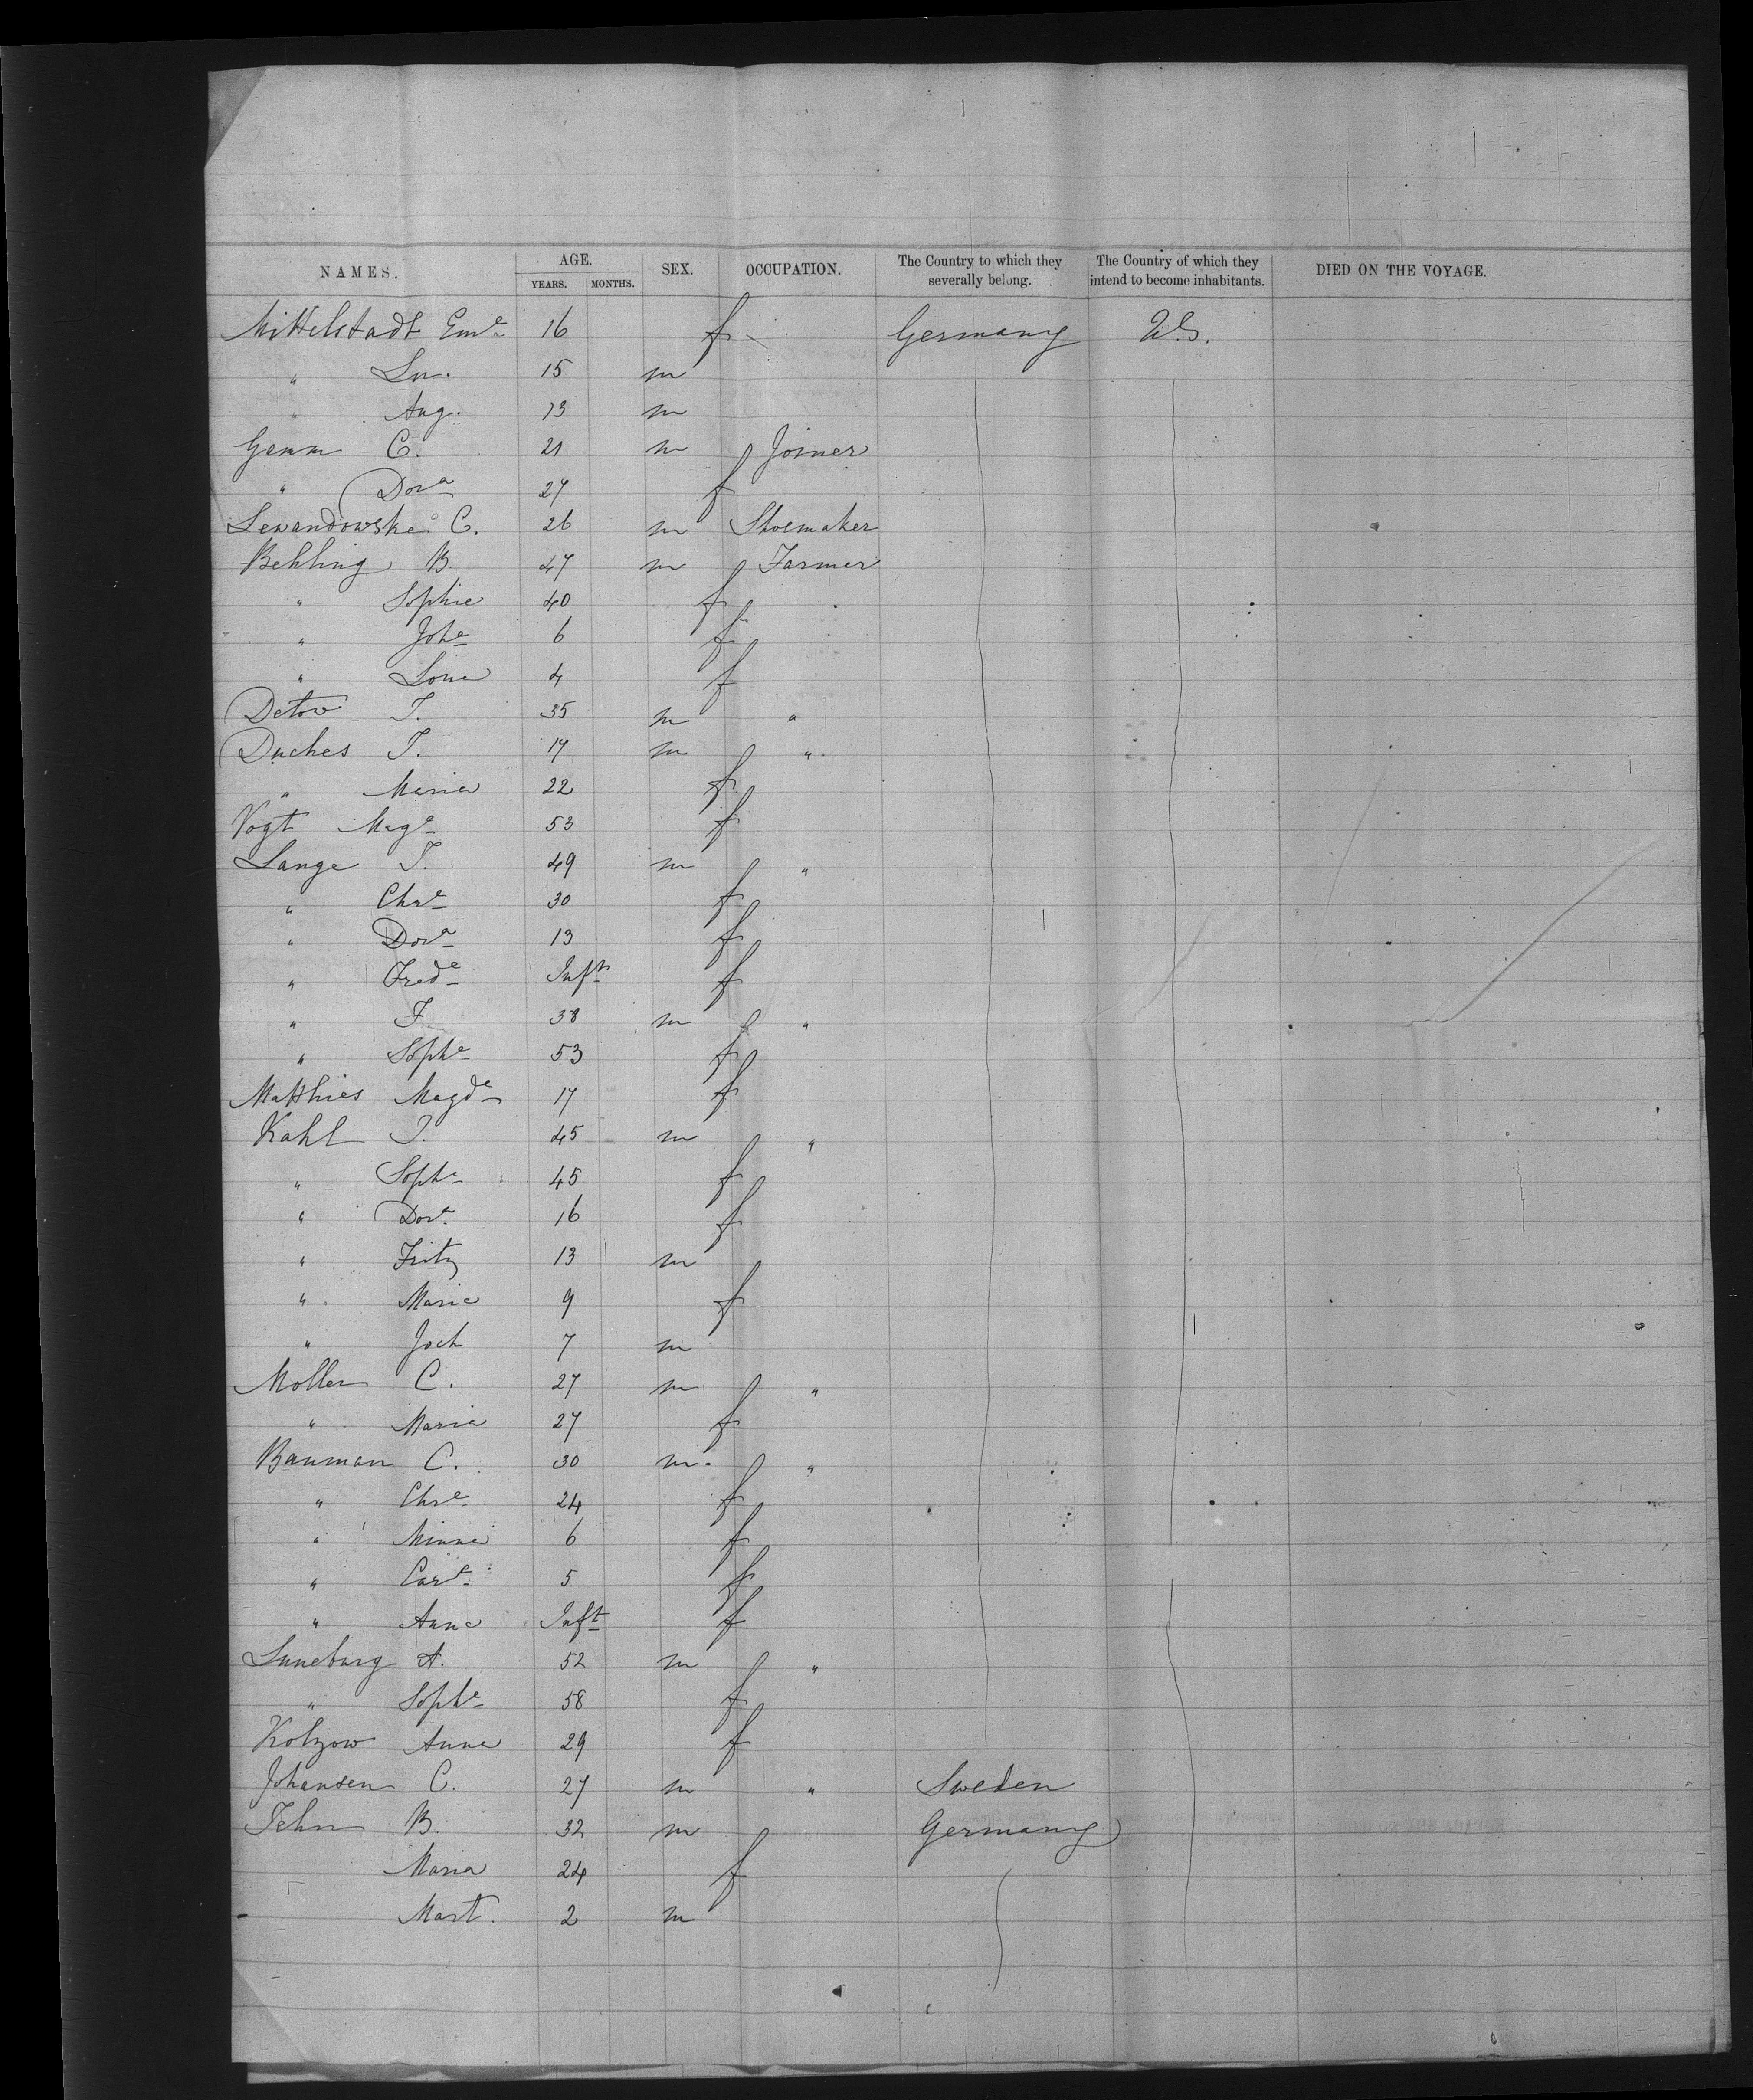 NAMES. AGE. SEX. OCCUPATION. The Country to which they severally belong. The Country of which they intend to become inhabitants. DIED ON THE VOYAGE.
YEARS. MONTHS.
Mittelstadt Eme 16 f Germany U.S.
" Lu. 15 m
" Aug. 13 m
Gamm C. 21 m Joiner
" Dora 27 f
Lewandowske C. 26 m Shoemaker
Behling B. 47 m Farmer
" Sophie 40 f
" Johe 6 f
" Loue 4 f
Detov J. 35 m "
Duches J. 17 m "
" Maria 22 f
Vogt Mage 53 f
Lange J. 49 m "
" Chre 30 f
" Dora 13 f
" Frede Inft f
" F. 38 m "
" Sophe 53 f
Matthies Magde 17 f
Kahl J. 45 m "
" Sophe 45 f
" Dore 16 f
" Fritz 13 m
" Marie 9 f
" Joch 7 m
Moller C. 27 m "
" Maria 27 f
Bauman C. 30 m. "
" Chre 24 f
" Minna 6 f
" Care 5 f
" Anna Inft f
Luneburg A. 52 m "
" Sophe 58 f
Kolzow Anna 29 f
Johansen C. 27 m " Sweden
Jehn B. 32 m Germany
Maria 24 f
Mart. 2 m